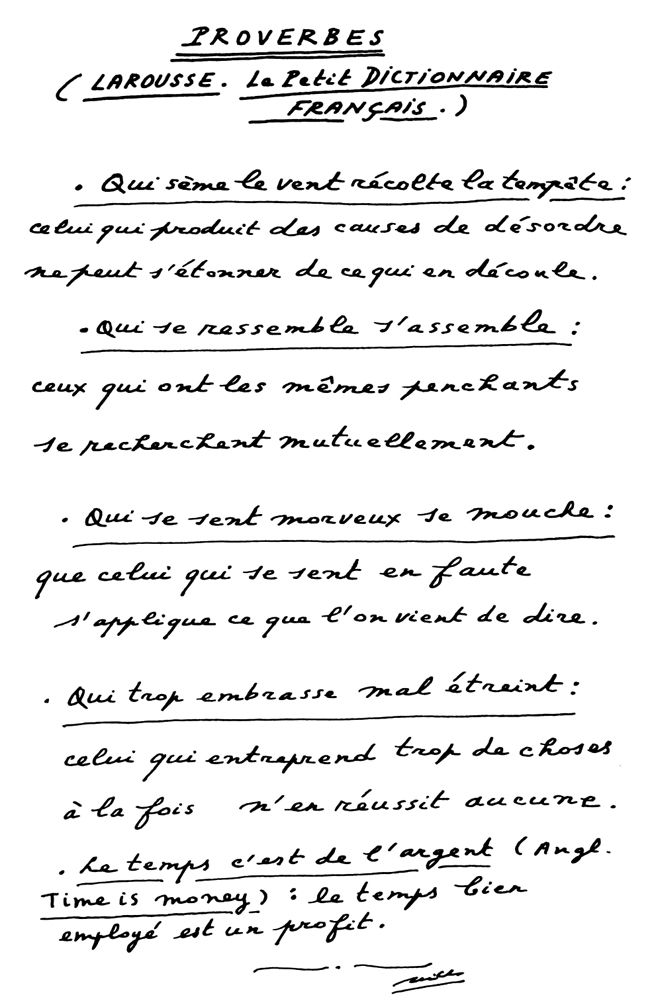 PROVERBES
( LAROUSSE. Le Petit DICTIONNAIRE
FRANÇAIS. )
. Qui sème le vent récolte la tempête :
celui qui produit des causes de désordre
ne peut s'étonner de ce qui en découle.
. Qui se ressemble s'assemble :
ceux qui ont les mêmes penchants
se recherchent mutuellement.
. Qui se sent morveux se mouche :
que celui qui se sent en faute
s'applique ce que l'on vient de dire.
. Qui trop embrasse mal étreint :
celui qui entreprend trop de choses
à la fois n'en réussit aucune.
. Le temps c'est de l'argent (Angl.
Time is money) : le temps bien
employé est un profit.